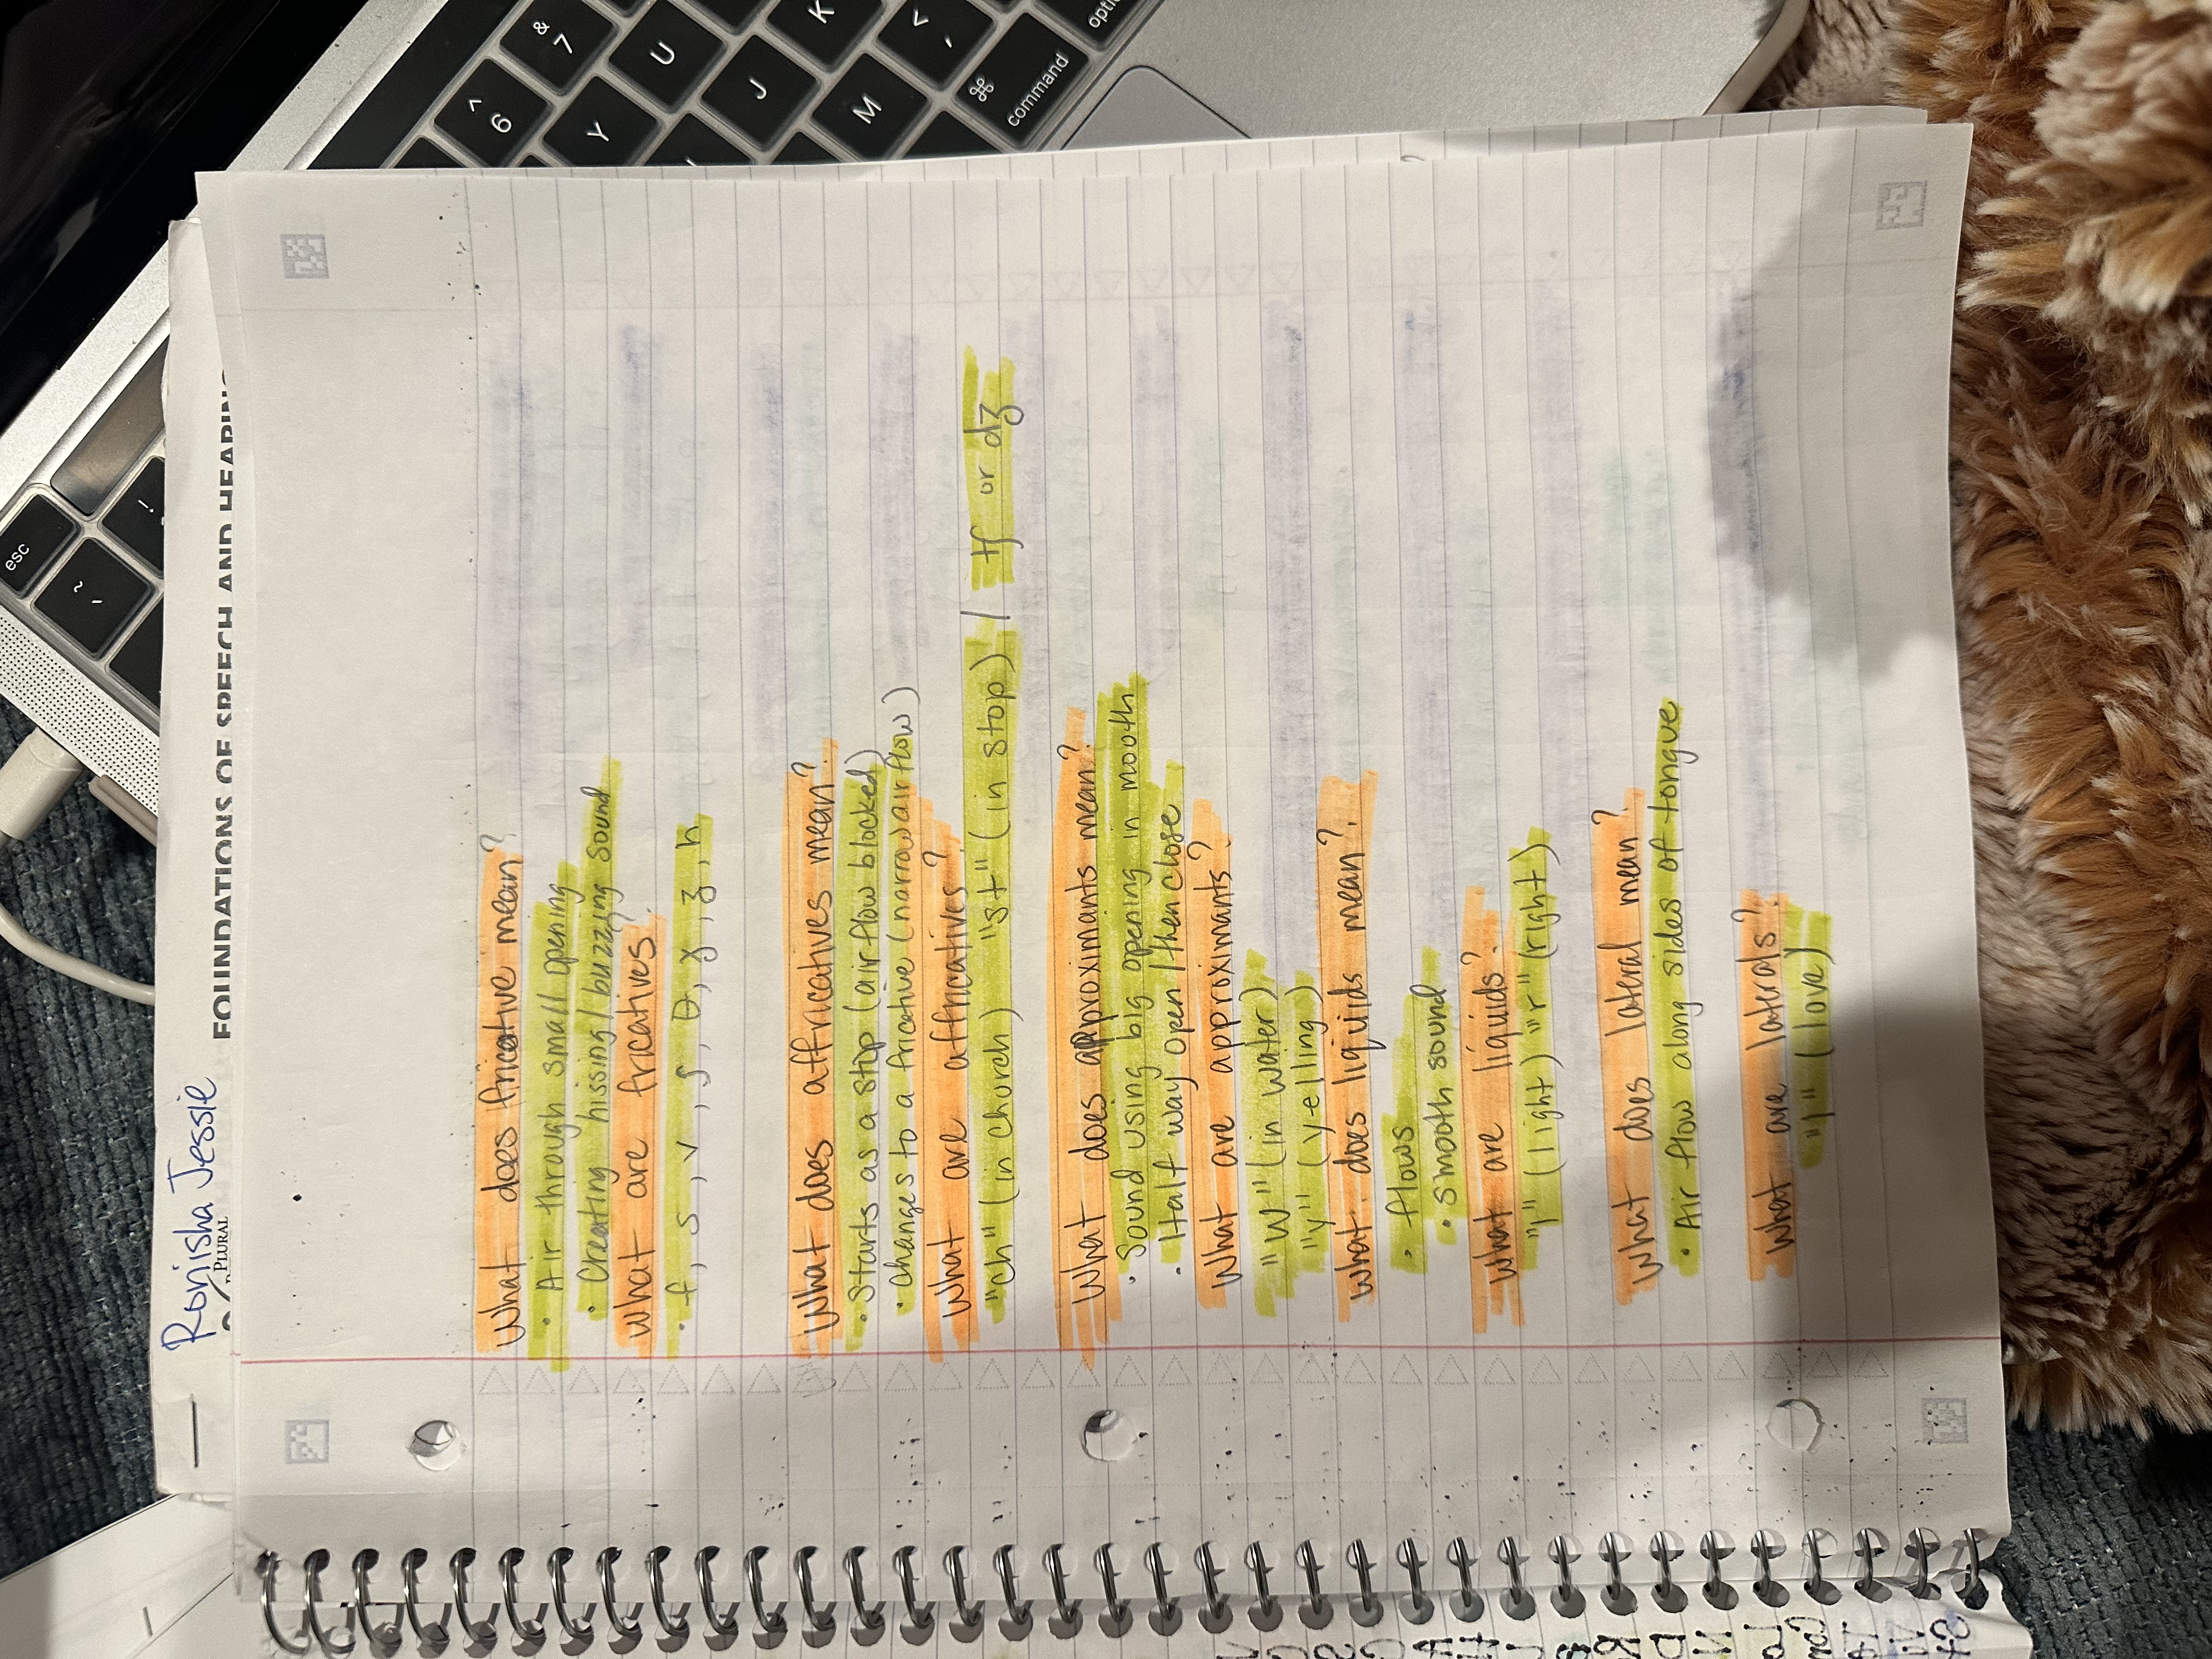 Ronisha Jessie
PLURAL
FOUNDATIONS OF SPEECH AND HEARING
What does fricative mean?
• Air through small opening
• Creating hissing/buzzing sound
What are fricatives?
• f, s, v, ʃ, θ, x, ʒ, ʒ, h
What does affricatives mean?
• Starts as a stop (air flow blocked)
• changes to a fricative (narrow air flow)
What are affricatives?
"ch" (in church) "st" (in stop) / tʃ or dʒ
What does approximants mean?
• Sound using big opening in mooth
• Half way open / then close
What are approximants?
"W" (in water)
"y" (yelling)
What does liquids mean?
• flows
• smooth sound
What are liquids?
"l" (light) "r" (right)
What does lateral mean?
• Air flow along sides of tongue
What are laterals?
"l" (love)
esc
~
`
!
^
6
&
7
Y
U
J
K
M
<
,
⌘
command